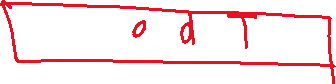 o d T